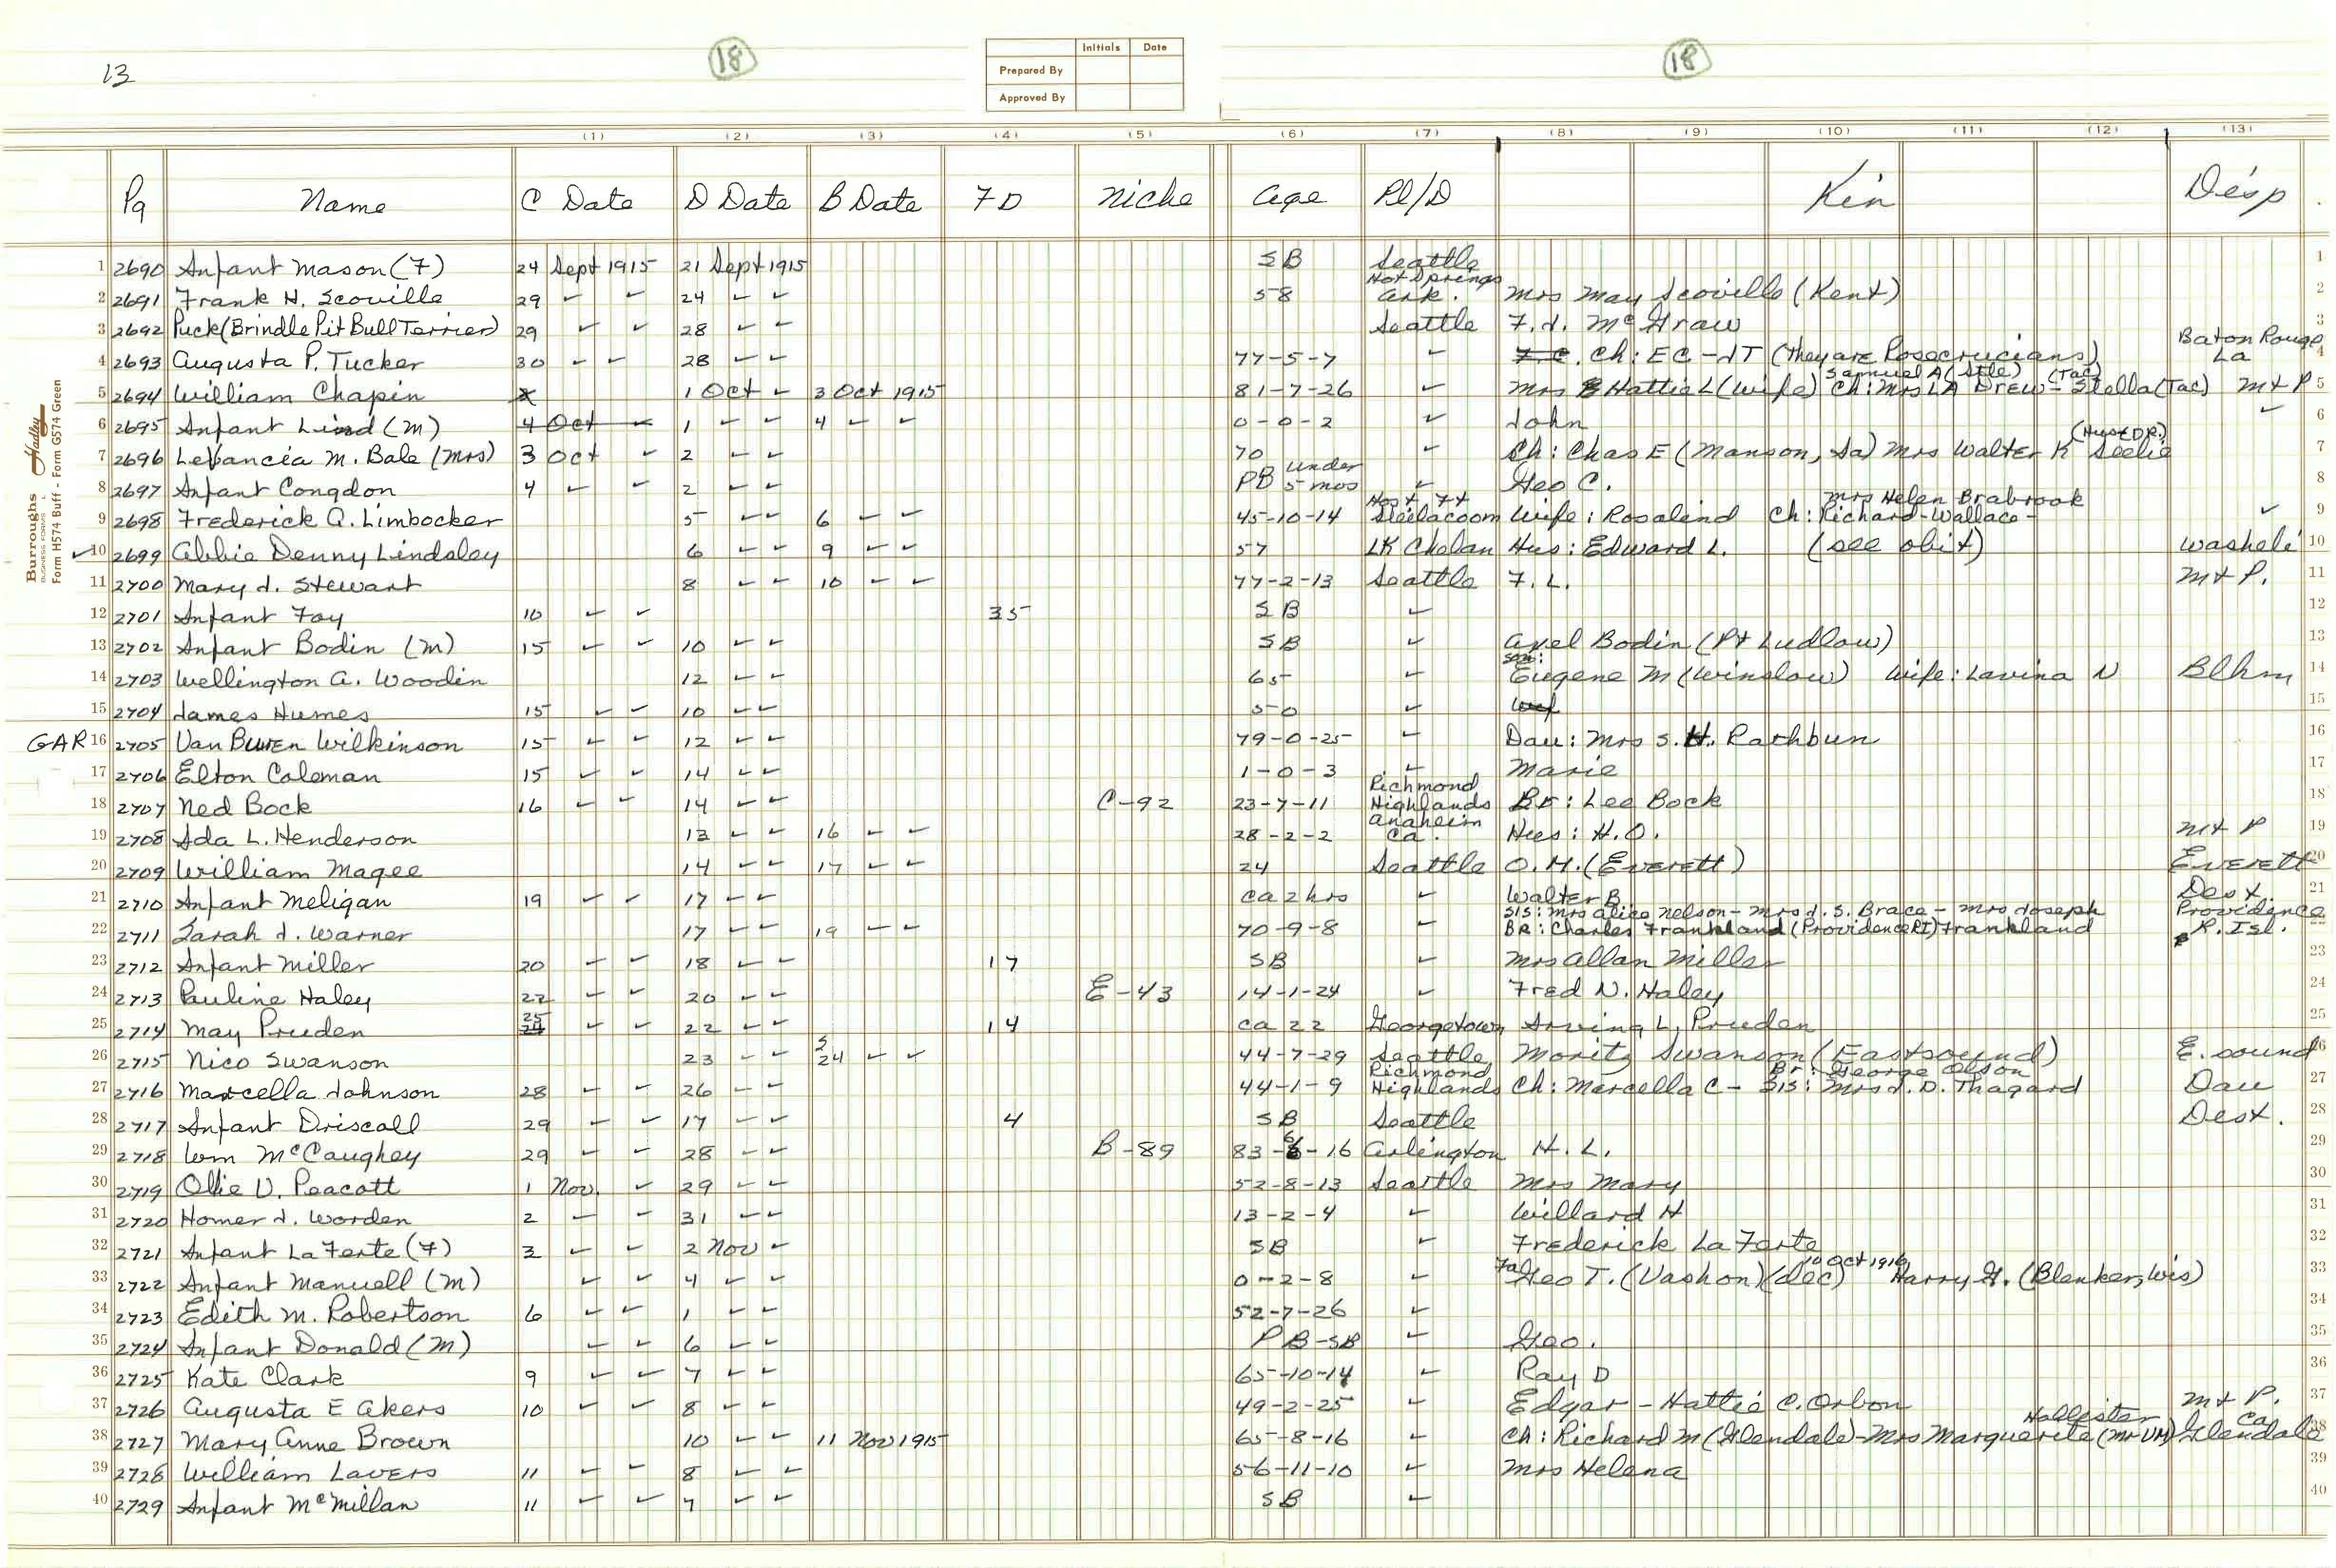 13
18
18
Initials Date
Prepared By
Approved By
Burroughs Hadley
BUSINESS FORMS
Form H574 Buff - Form G574 Green
(1) (2) (3) (4) (5) (6) (7) (8) (9) (10) (11) (12) (13)
Pg Name C Date D Date B Date FD Niche Age Pl/D Kin Disp
1 2690 Infant Mason (F) 24 Sept 1915 21 Sept 1915 SB Seattle 1
2 2691 Frank H. Scoville 29 ✓ ✓ 24 ✓ ✓ 58 Hot Springs Ark. Mrs May Scoville (Kent) 2
3 2692 Puck (Brindle Pit Bull Terrier) 29 ✓ ✓ 28 ✓ ✓ Seattle F. J. McGraw 3
4 2693 Augusta P. Tucker 30 ✓ ✓ 28 ✓ ✓ 77-5-7 ✓ Ch: EC - JT (they are Rosecrucians) Baton Rouge La 4
5 2694 William Chapin 1 Oct ✓ 3 Oct 1915 81-7-26 ✓ Mrs Hattie L (wife) Ch: Mrs LA Drew - Samuel A (Stle) (Tac) Stella (Tac) Mt P 5
6 2695 Infant Lind (M) 4 Oct ✓ 1 ✓ ✓ 4 ✓ ✓ 0-0-2 ✓ John ✓ 6
7 2696 Levancia M. Bale (Mrs) 3 Oct ✓ 2 ✓ ✓ 70 ✓ Ch: Chas E (Manson, Ia) Mrs Walter K Seelie (Hus DR.) 7
8 2697 Infant Congdon 4 ✓ ✓ 2 ✓ ✓ PB under 5 mos ✓ Geo C. 8
9 2698 Frederick Q. Limbocker 5 ✓ ✓ 6 ✓ ✓ 45-10-14 Hosp Ft Steilacoom Wife: Rosalind Ch: Richard - Wallace - Mrs Helen Brabrook ✓ 9
✓ 10 2699 Abbie Denny Lindsley 6 ✓ ✓ 9 ✓ ✓ 57 LK Chelan Hus: Edward L. (see obit) Washeli 10
11 2700 Mary J. Stewart 8 ✓ ✓ 10 ✓ ✓ 77-2-13 Seattle F. L. Mt P. 11
12 2701 Infant Foy 10 ✓ ✓ 35 SB ✓ 12
13 2702 Infant Bodin (M) 15 ✓ ✓ 10 ✓ ✓ SB ✓ Axel Bodin (Pt Ludlow) 13
14 2703 Wellington A. Woodin 12 ✓ ✓ 65 ✓ son: Eugene M (Winslow) Wife: Lavina N Blhm 14
15 2704 James Humes 15 ✓ ✓ 10 ✓ ✓ 50 ✓ 15
GAR 16 2705 Van Buren Wilkinson 15 ✓ ✓ 12 ✓ ✓ 79-0-25 ✓ Dau: Mrs S. H. Rathbun 16
17 2706 Elton Coleman 15 ✓ ✓ 14 ✓ ✓ 1-0-3 ✓ Marie 17
18 2707 Ned Bock 16 ✓ ✓ 14 ✓ ✓ C-92 23-7-11 Richmond Highlands Br: Lee Bock 18
19 2708 Ada L. Henderson 13 ✓ ✓ 16 ✓ ✓ 28-2-2 Anaheim Ca. Hus: H. O. Mt P 19
20 2709 William Magee 14 ✓ ✓ 17 ✓ ✓ 24 Seattle O. H. (Everett) Everett 20
21 2710 Infant Meligan 19 ✓ ✓ 17 ✓ ✓ ca 2 hrs ✓ Walter B Dest. 21
22 2711 Sarah J. Warner 17 ✓ ✓ 19 ✓ ✓ 70-9-8 ✓ SIS: Mrs Alice Nelson - Mrs J. S. Brace - Mrs Joseph Frankland BR: Charles Frankland (Providence RI) Providence R. Isl. 22
23 2712 Infant Miller 20 ✓ ✓ 18 ✓ ✓ 17 SB ✓ Mrs Allan Miller 23
24 2713 Pauline Haley 22 ✓ ✓ 20 ✓ ✓ E-43 14-1-24 ✓ Fred N. Haley 24
25 2714 May Pruden 25 ✓ ✓ 22 ✓ ✓ 14 ca 22 Georgetown Irving L. Pruden 25
26 2715 Nico Swanson 23 ✓ ✓ S 24 ✓ ✓ 44-7-29 Seattle Moritz Swanson (Eastsound) E. sound 26
27 2716 Marcella Johnson 28 ✓ ✓ 26 ✓ ✓ 44-1-9 Richmond Highlands Ch: Marcella C - Br: George Olson SIS: Mrs J. D. Thagard Dau 27
28 2717 Infant Driscoll 29 ✓ ✓ 17 ✓ ✓ 4 SB Seattle Dest. 28
29 2718 Wm McCaughey 29 ✓ ✓ 28 ✓ ✓ B-89 83-6-16 Arlington H. L. 29
30 2719 Ollie V. Peacott 1 Nov. ✓ 29 ✓ ✓ 52-8-13 Seattle Mrs Mary 30
31 2720 Homer J. Worden 2 ✓ ✓ 31 ✓ ✓ 13-2-4 ✓ Willard H 31
32 2721 Infant La Forte (F) 3 ✓ ✓ 2 Nov ✓ SB ✓ Frederick La Forte 32
33 2722 Infant Manuell (M) ✓ ✓ 4 ✓ ✓ 0-2-8 ✓ Fa: Geo T. (Vashon) (dec) 10 Oct 1916 Harry H. (Blenker, Wis) 33
34 2723 Edith M. Robertson 6 ✓ ✓ 1 ✓ ✓ 52-7-26 ✓ 34
35 2724 Infant Donald (M) ✓ ✓ 6 ✓ ✓ PB-SB ✓ Geo. 35
36 2725 Kate Clark 9 ✓ ✓ 7 ✓ ✓ 65-10-14 ✓ Ray D 36
37 2726 Augusta E Akers 10 ✓ ✓ 8 ✓ ✓ 49-2-25 ✓ Edgar - Hattie C. Orbon Mt P. 37
38 2727 Mary Anne Brown 10 ✓ ✓ 11 Nov 1915 65-8-16 ✓ Ch: Richard M (Glendale) - Mrs Marguerite Hollister (Mr VM) Glendale Ca 38
39 2728 William Lavers 11 ✓ ✓ 8 ✓ ✓ 56-11-10 ✓ Mrs Helena 39
40 2729 Infant McMillan 11 ✓ ✓ 7 ✓ ✓ SB ✓ 40